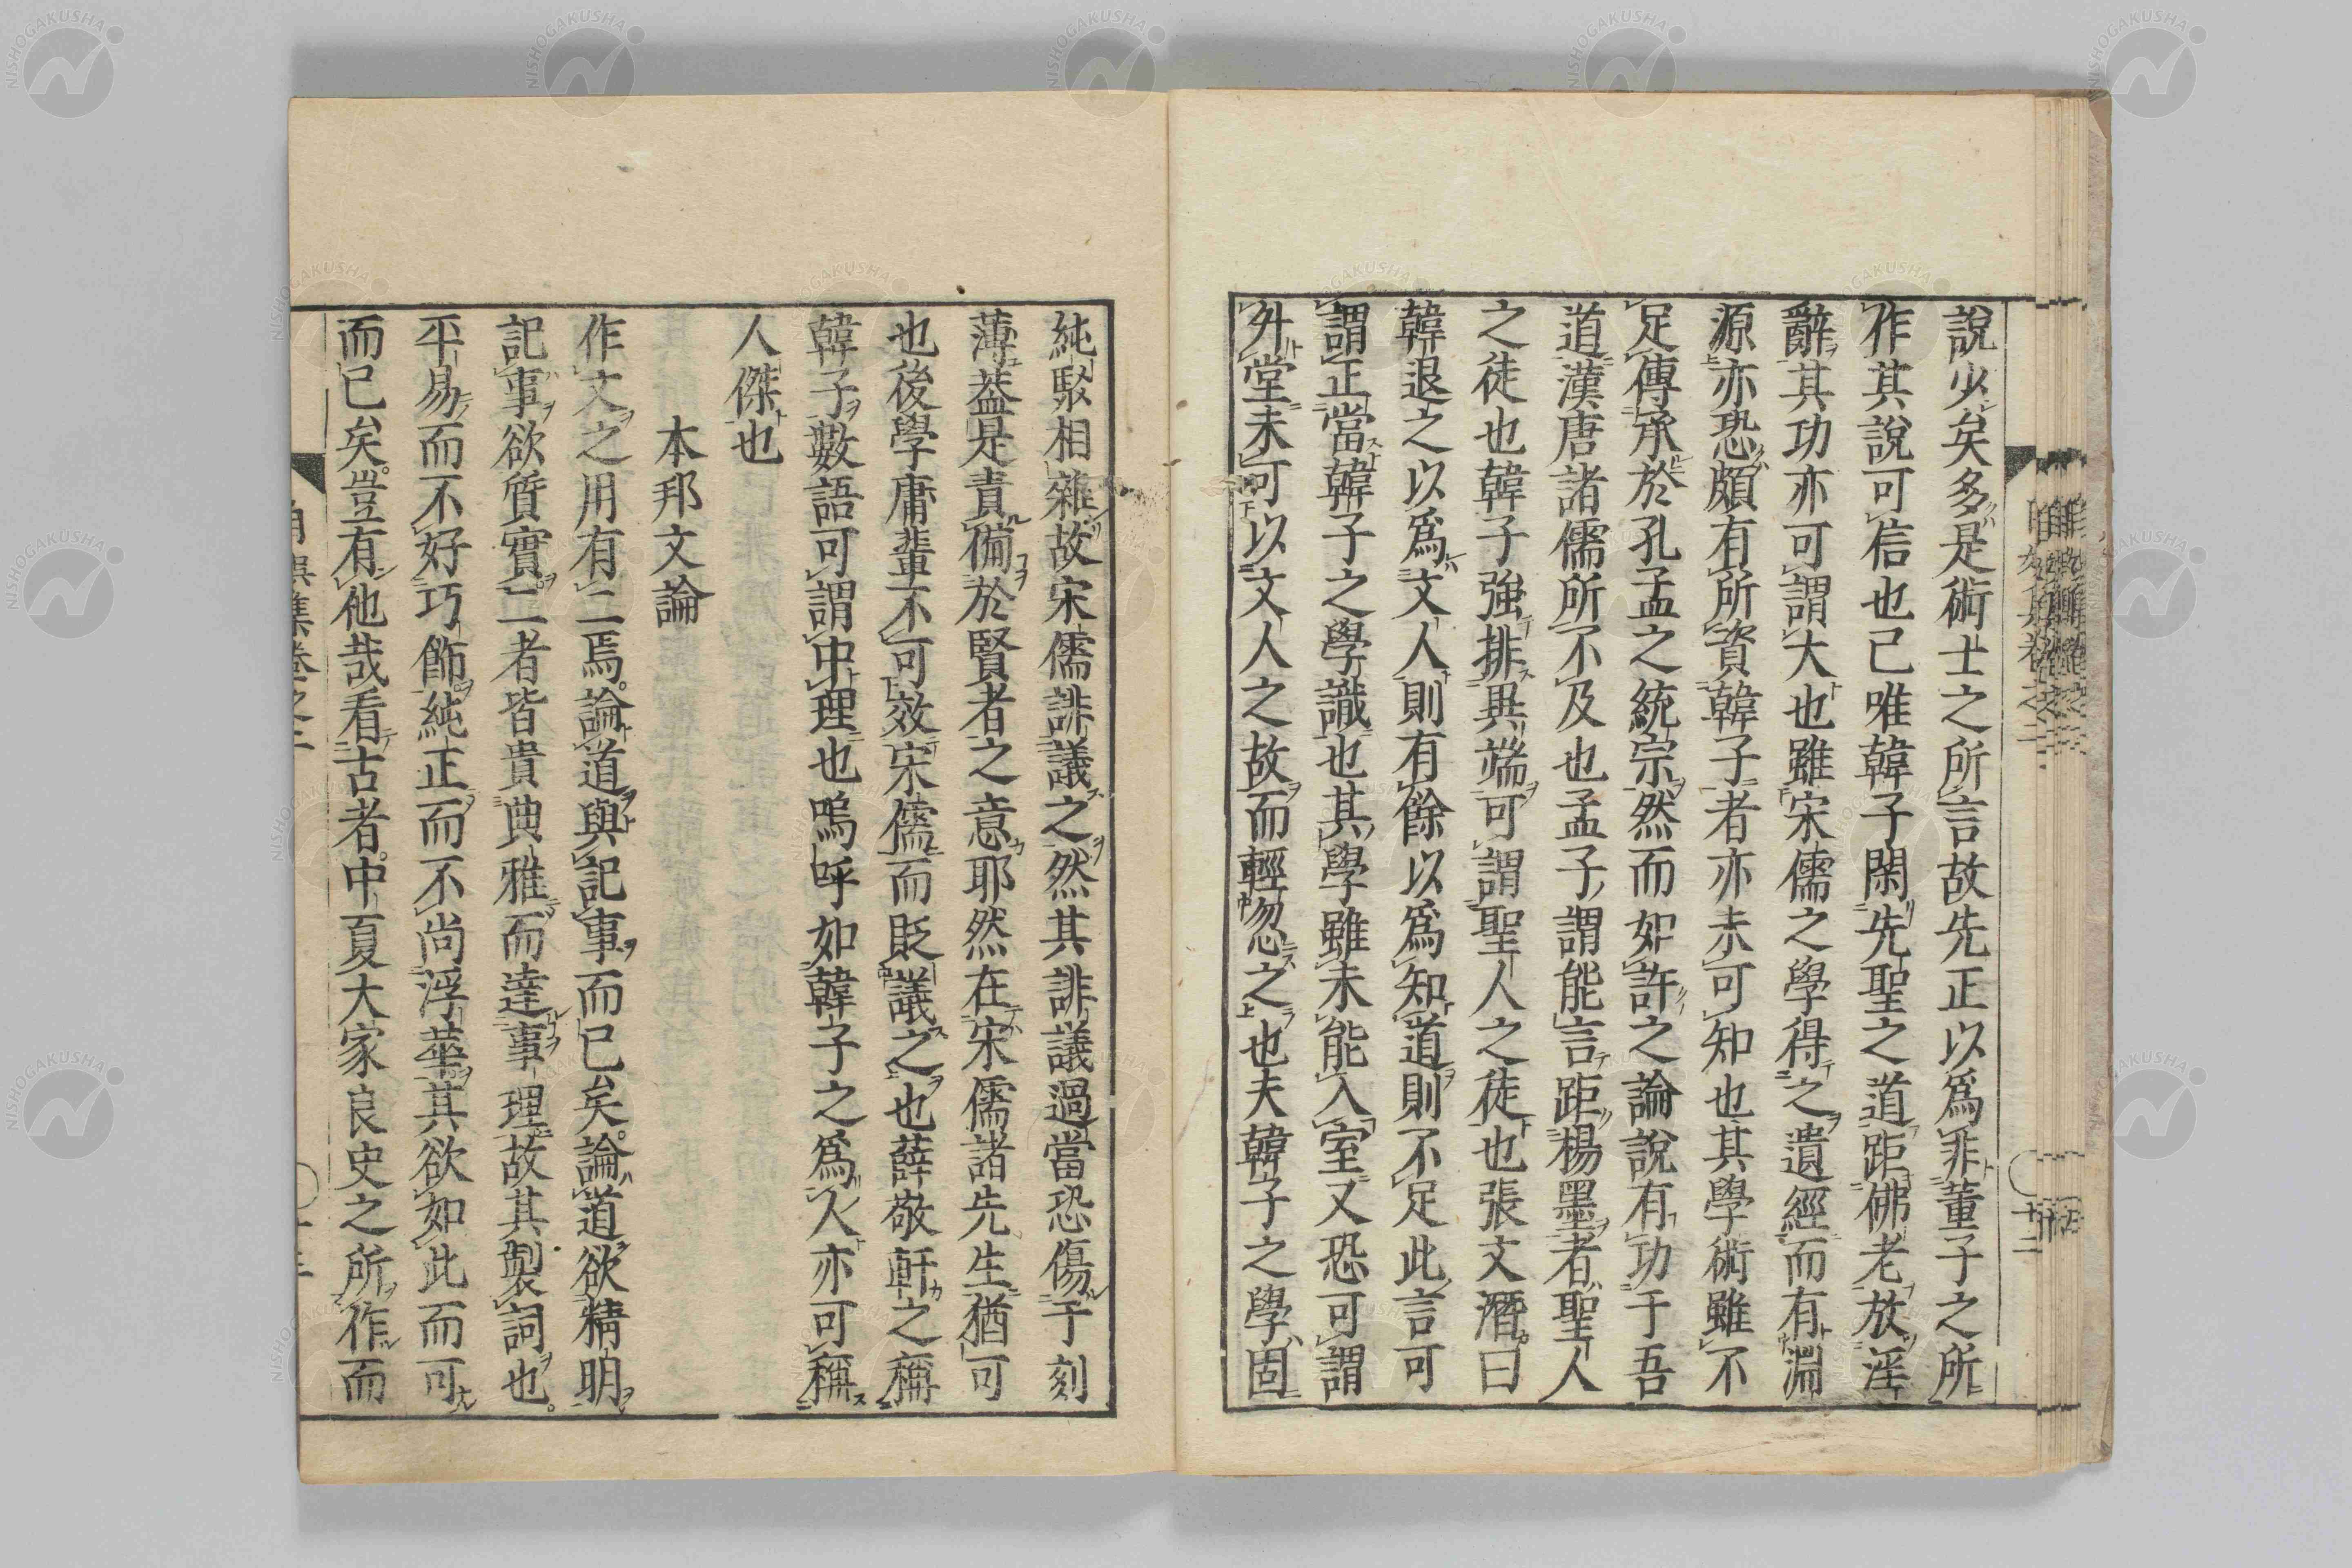 說少矣多是術士之所言故先正以爲非董子之所
作其說可信也已唯韓子閑先聖之道距佛老放淫
辭其功亦可謂大也雖宋儒之學得之遺經而有淵
源亦恐頗有所資韓子者亦未可知也其學術雖不
足傳承於孔孟之統宗然而如許之論說有功于吾
道漢唐諸儒所不及也孟子謂能言距楊墨者聖人
之徒也韓子強排異端可謂聖人之徒也張文潛曰
韓退之以爲文人則有餘以爲知道則不足此言可
謂正當韓子之學識也其學雖未能入室又恐可謂
外堂未可以文人之故而輕忽之也夫韓子之學固
純駁相雜故宋儒誹議之然其誹議過當恐傷于刻
薄葢是責備於賢者之意耶然在宋儒諸先生猶可
也後學庸輩不可效宋儒而貶議之也薛敬軒之稱
韓子數語可謂中理也嗚呼如韓子之爲人亦可稱
人傑也
本邦文論
作文之用有二焉論道與記事而已矣論道欲精明
記事欲質實二者皆貴典雅而達事理故其製詞也
平易而不好巧飾純正而不尚浮華其欲如此而可
而已矣豈有他哉看古者中夏大家良史之所作而